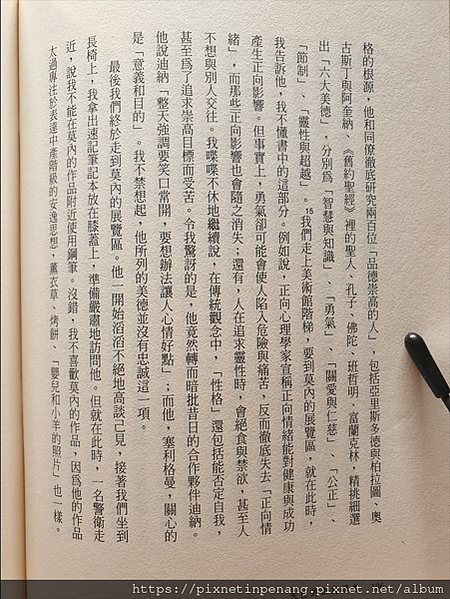 格的根源，他和同僚徹底研究兩百位「品德崇高的人」，包括亞里斯多德與柏拉圖、奧
古斯丁與阿奎納、《舊約聖經》裡的聖人、孔子、佛陀、班哲明．富蘭克林，精挑細選
出「六大美德」，分別為「智慧與知識」、「勇氣」、「關愛與仁慈」、「公正」、
「節制」、「靈性與超越」。15我們走上美術館階梯，要到莫內的展覽區，就在此時，
我告訴他，我不懂書中的這部分。例如說，正向心理學家宣稱正向情緒能對健康與成功
產生正向影響。但事實上，勇氣卻可能會使人陷入危險與痛苦，反而徹底失去「正向情
緒」，而那些正向影響也會隨之消失；還有，人在追求靈性時，會絕食與禁欲，甚至人
不想與別人交往。我喋喋不休地繼續說，在傳統觀念中，「性格」還包括能否定自我，
甚至為了追求崇高目標而受苦。令我驚訝的是，他竟然轉而暗批昔日的合作夥伴迪納。
他說迪納「整天強調要笑口常開，要想辦法讓人心情好點」；而他，塞利格曼，關心的
是「意義和目的」。我不禁想起，他所列的美德並沒有忠誠這一項。
最後我們終於走到莫內的展覽區。他一開始滔滔不絕地高談己見，接著我們坐到
長椅上，我拿出速記筆記本放在膝蓋上，準備嚴肅地訪問他。但就在此時，一名警衛走
近，說我不能在莫內的作品附近使用鋼筆。沒錯，我不喜歡莫內的作品，因為他的作品
太過專注於表達中產階級的安逸思想，薰衣草、烤餅、「嬰兒和小羊的照片」也一樣。
https://pixnetinpenang.pixnet.net/album